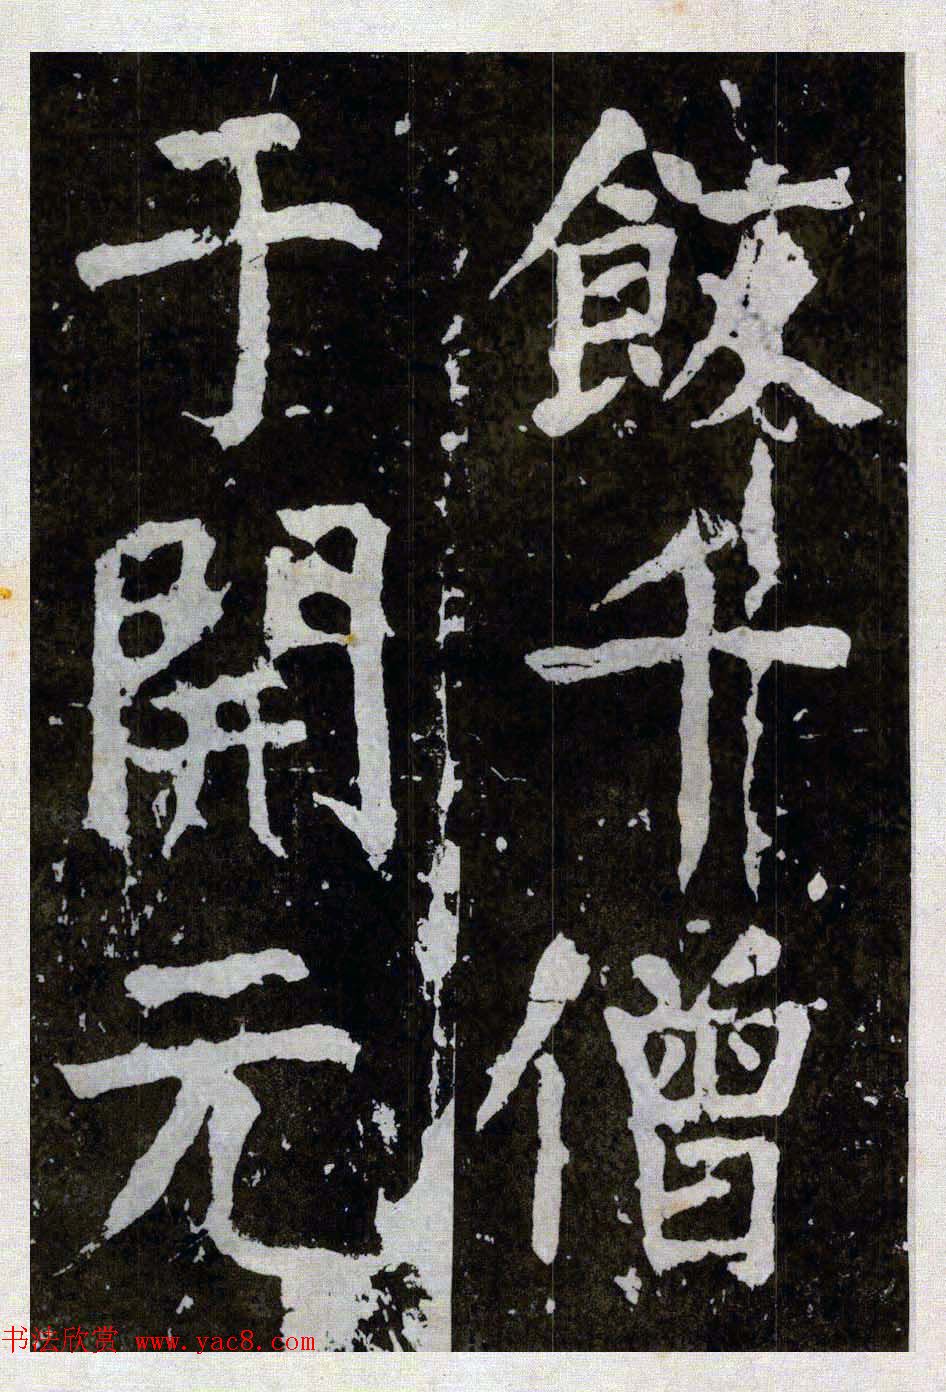 飯千僧
于開元
书法欣赏 www.yac8.com